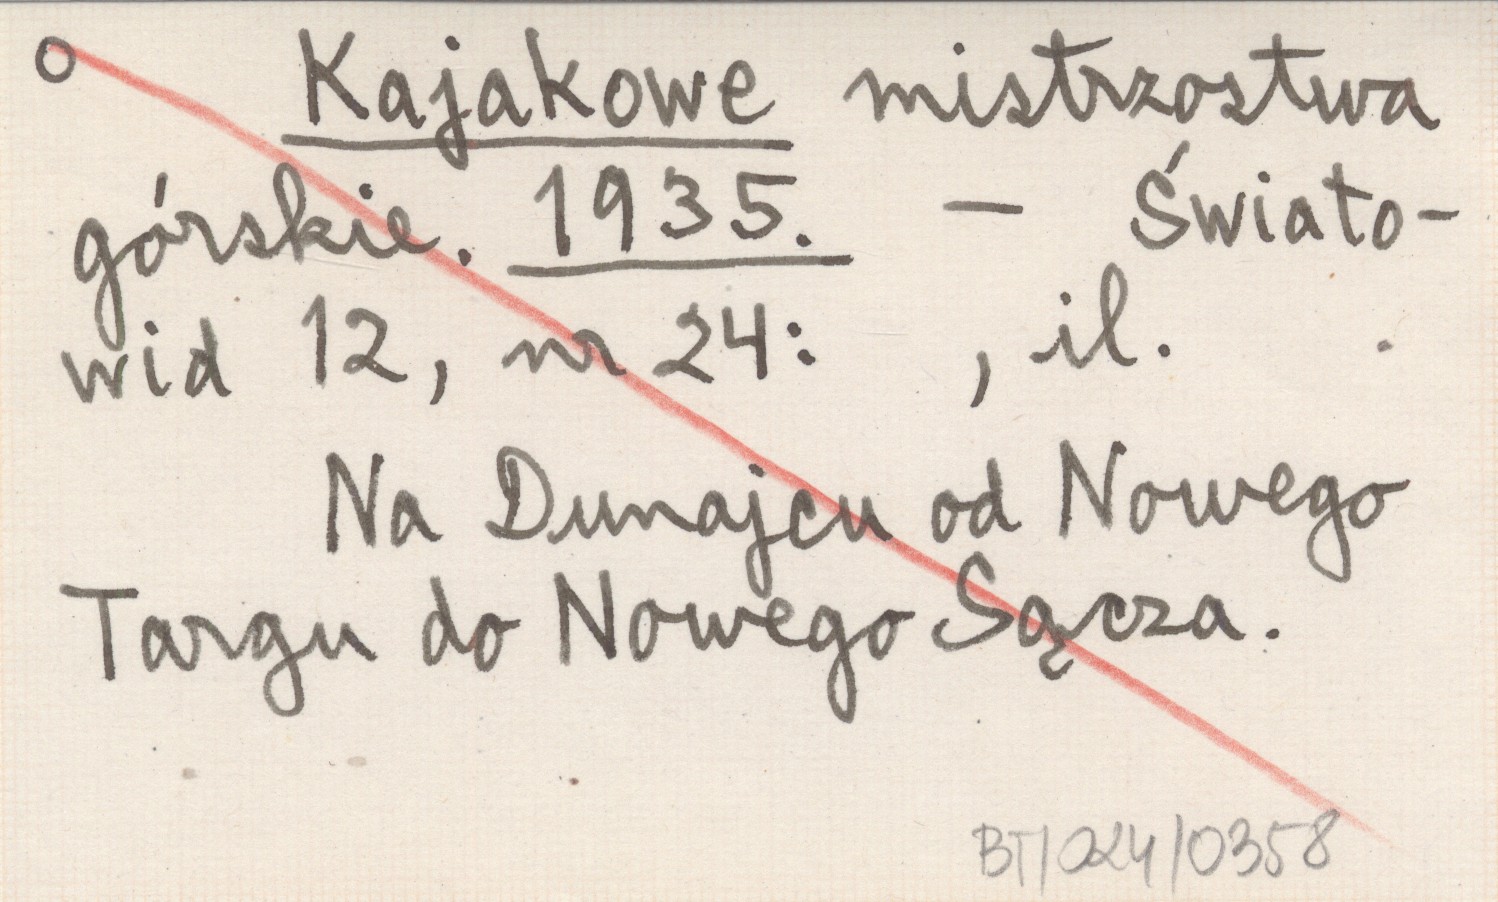 o Kajakowe mistrzostwa
górskie. 1935. – Świato-
wid 12, nr 24: , il.
Na Dunajcu od Nowego
Targu do Nowego Sącza.
BT/024/0358